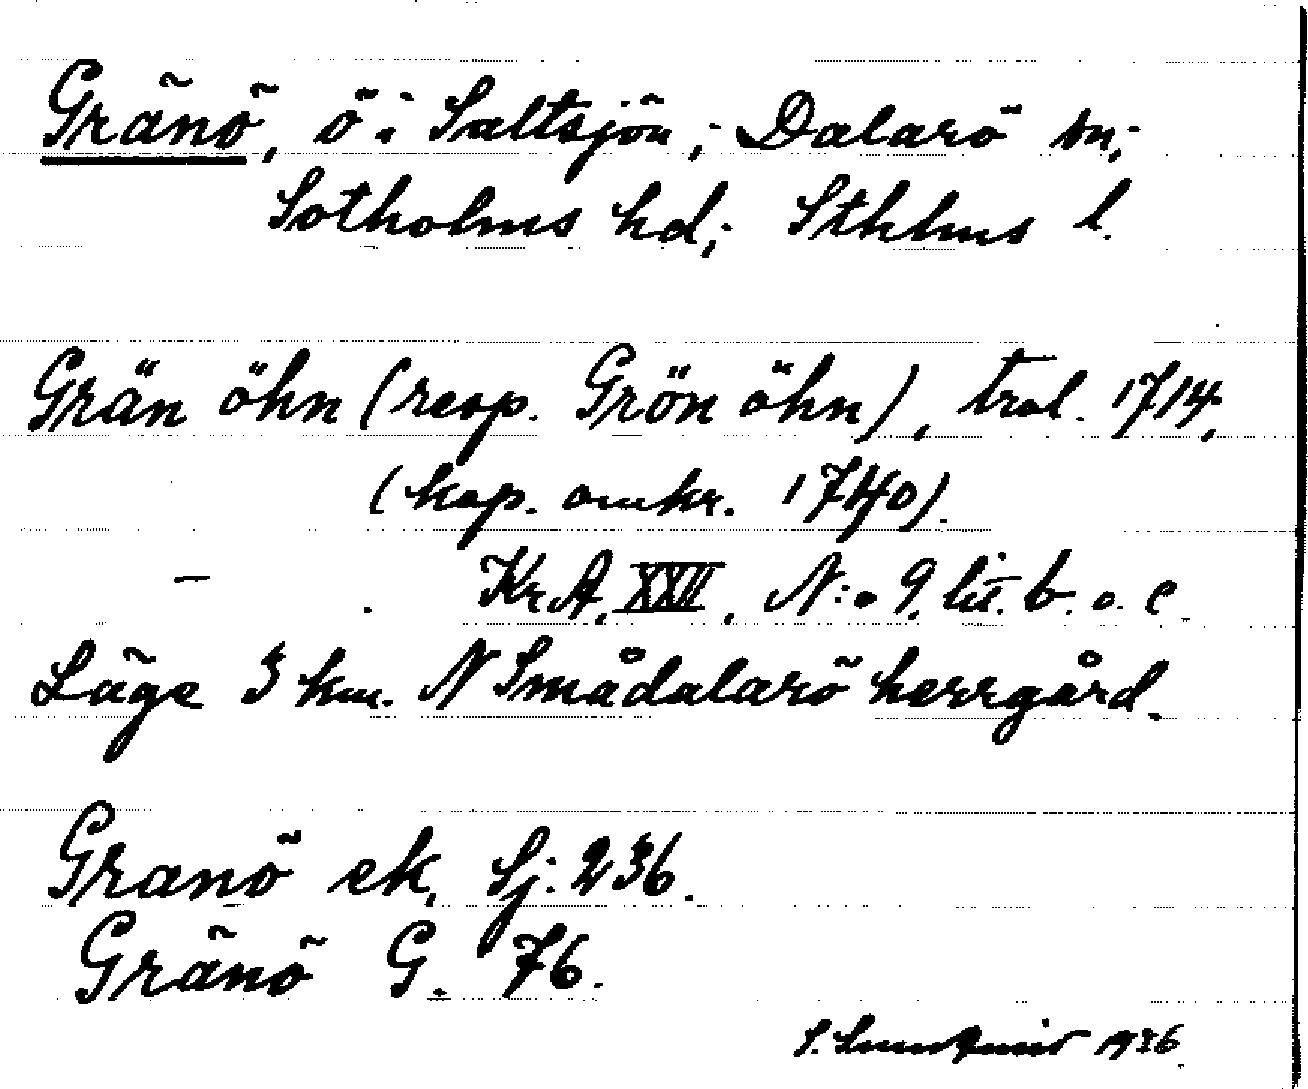 Gränö, ö i Saltsjön; Dalarö sn;
Sotholms hd; Sthlms l.
Grän öhn (resp. Grön öhn), tral. 1714,
(kop. omkr. 1740).
— . Kr.A. XXII, N:o 9. lit. b. o. c.
Läge 3 km. N Smådalarö herrgård.
Granö ek. Sj. 236.
Gränö G. 76.
S. 1936.